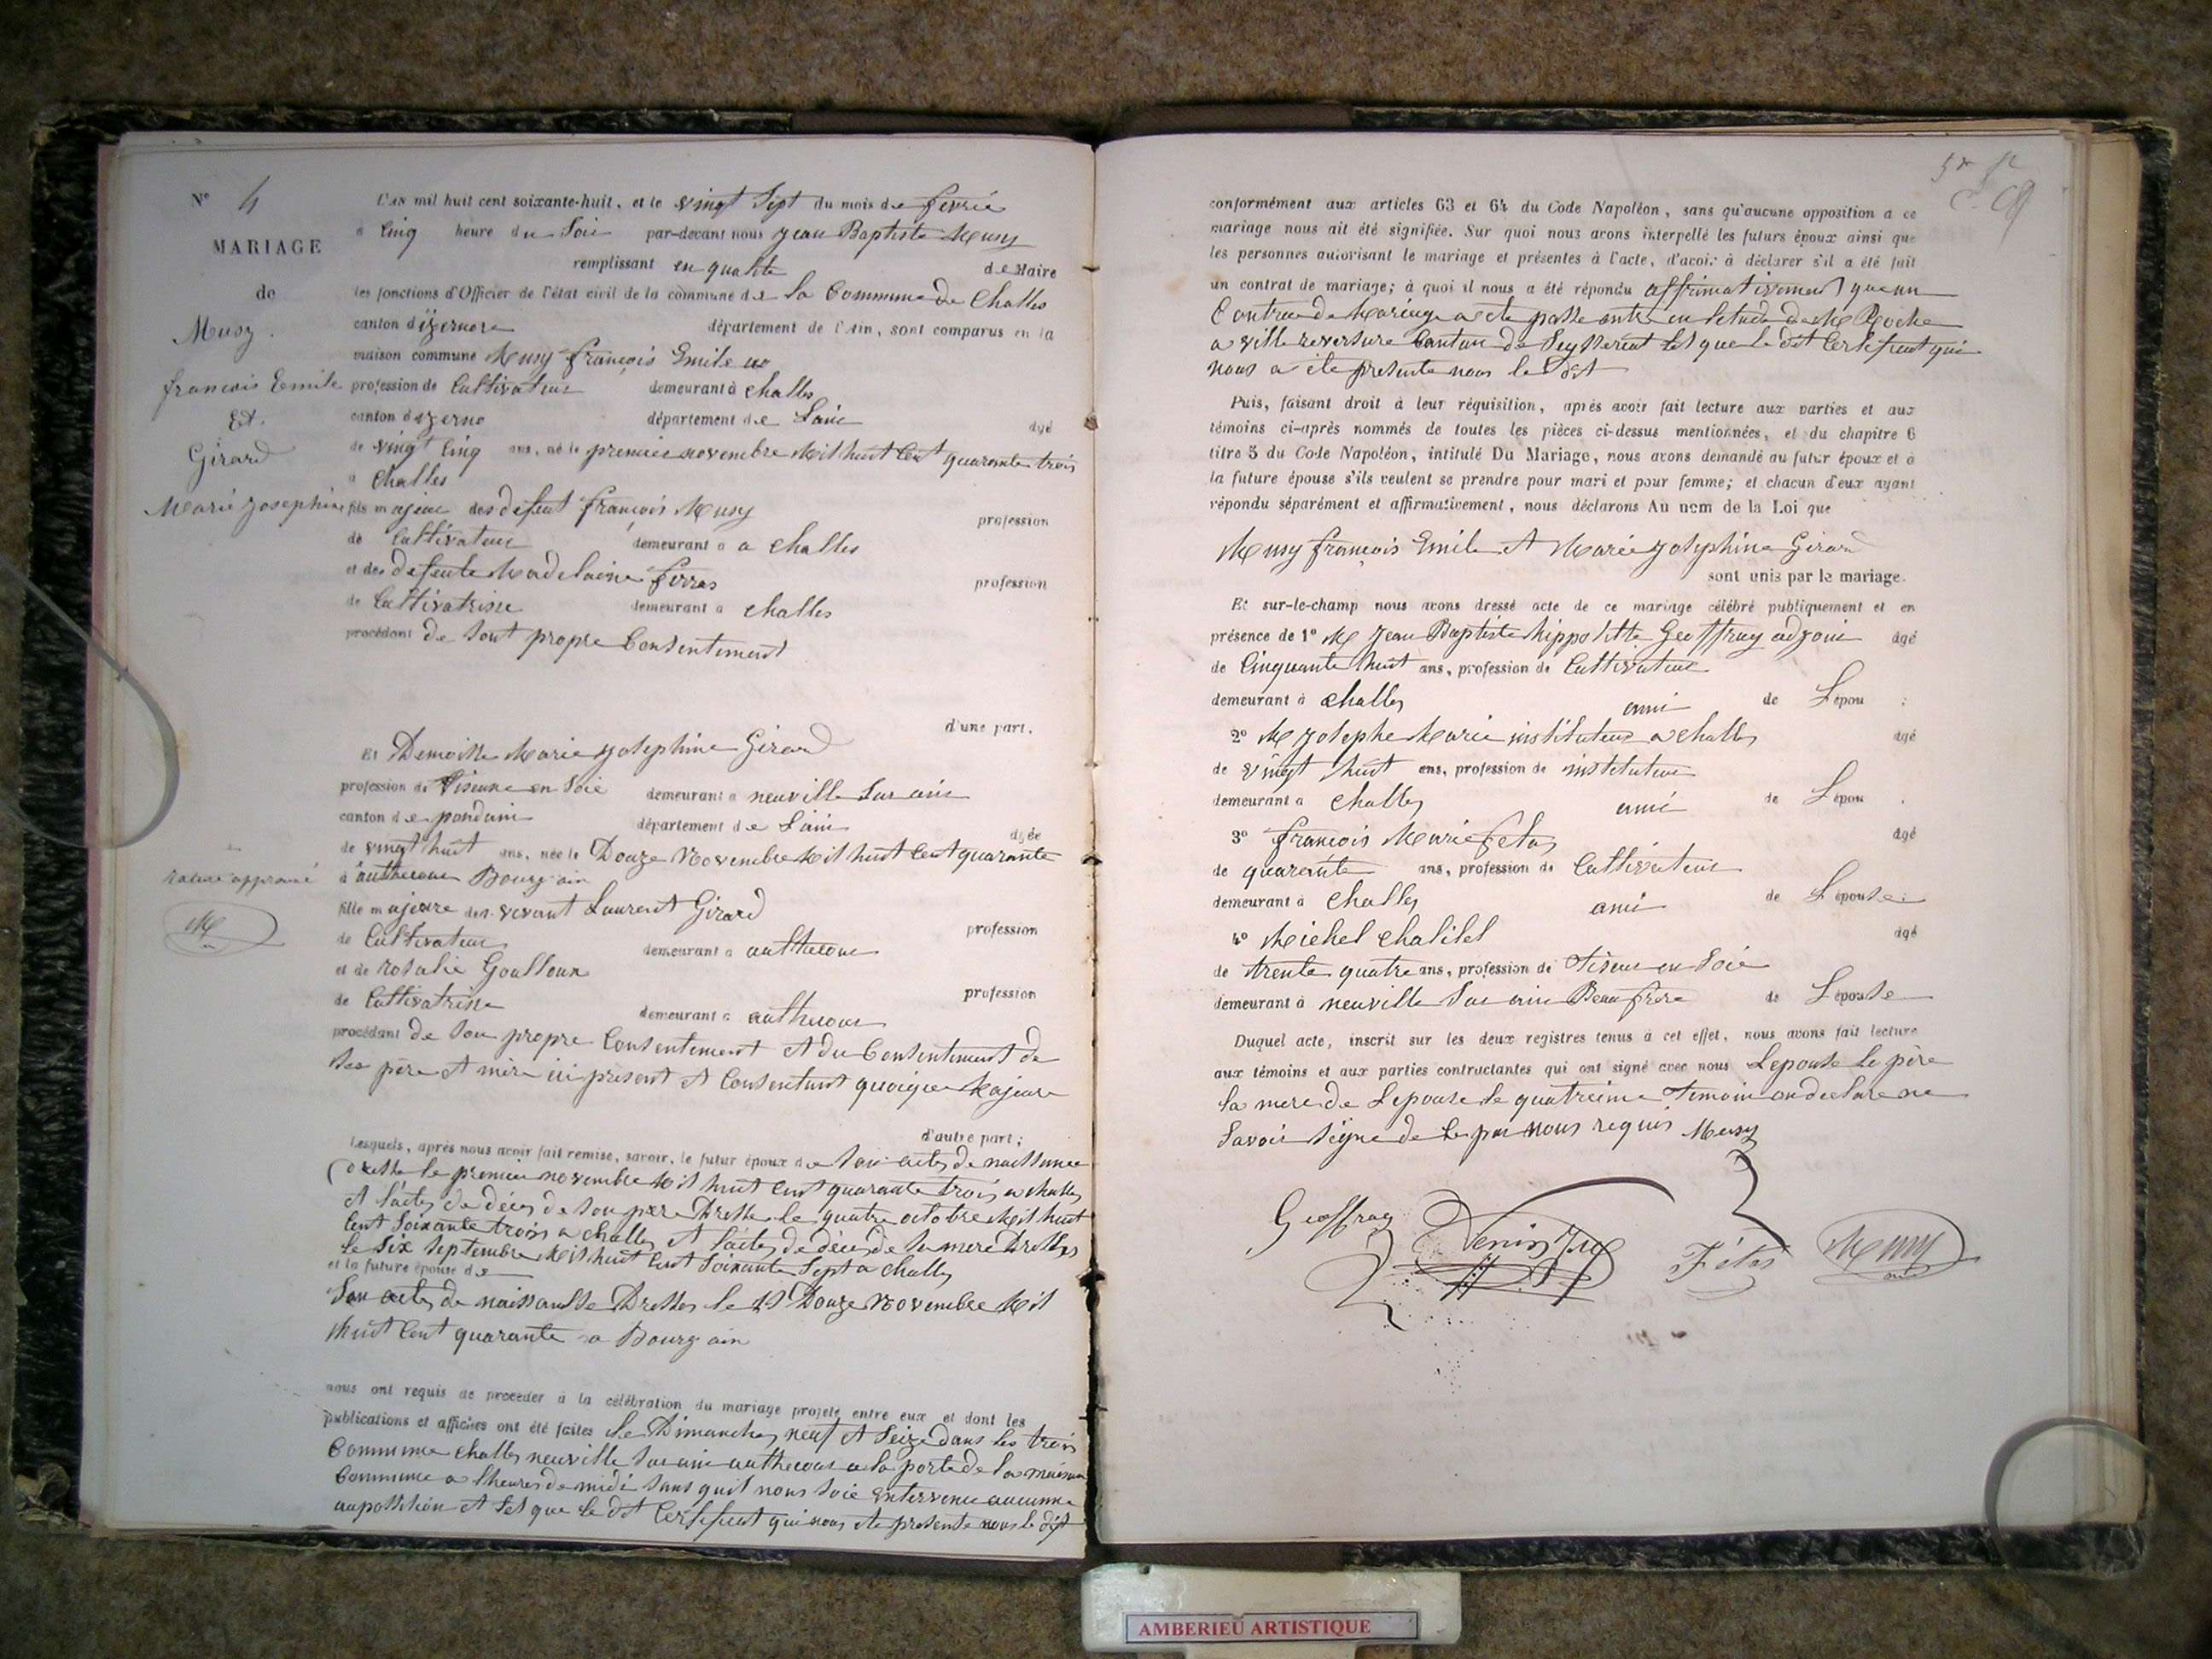 N° 4
MARIAGE
de
Musy.
francois Emile
Et.
Girard
Marie Josephine
rature approuvé
M
L'AN mil huit cent soixante-huit, et le vingt Sept du mois de fevrié
à Cinq heure du Soir par-devant nous Jean Baptiste Musy
remplissant en qualite de Maire
les fonctions d'Officier de l'état civil de la commune de la Commune de Challes
canton d'izernore département de l'Ain, sont comparus en la
maison commune Musy françois Emile
profession de Cultivateur demeurant à Challes
canton d izerno département de Lain
âgé
de vingt Cinq ans, né le premier novembre Mil huit Cent quarante trois
a Challes
fils majeur des defunt françois Musy
profession
de Cultivateur demeurant à a Challes
et des defunte Madelaine ferras
profession
de Cultivatrisse demeurant à Challes
procédant de Sont propre Consentement
d'une part.
Et Demoille Marie Josephine Girard
profession de Tiseuse en Soie demeurant à neuville Sur ain
canton de pondain département de Lain
âgée
de vingt huit ans, née le Douze Novembre Mil huit Cent quarante
à Bourg ain
fille majeure des vivant Laurent Girard
profession
de Cultivateur demeurant à
et de rosalie Goulloux
profession
de Cultivatrisse demeurant à
procédant de Son propre Consentement et du Consentement de
Ses père et mère ici présent et Consentant quoique Majeure
d'autre part;
Lesquels, après nous avoir fait remise, savoir, le futur époux de Son actes de naissance
dresse le premier novembre Mil huit Cent quarante trois a Challes
et lactes de déces de Son pere Dresse le quatre octobre Mil huit
Cent Soixante trois a Challes et lactes de déces de Sa mere Dresses
le Six Septembre Mil huit Cent Soixante Sept a Challes
et la future épouse de
Son actes de naissansse Dresses le Douze Novembre Mil
huit Cent quarante a Bourg ain
nous ont requis de procéder à la célébration du mariage projeté entre eux et dont les
publications et affiches ont été faites le Dimanches neuf et Seize dans les trois
Commune Challes neuville Sur ain a la porte de la maison
Commune a lheures de midi Sans quil nous Soie intervenu aucunne
auposition et tel que le dit Certificat qui nous ete presente nous le dit
conformément aux articles 63 et 64 du Code Napoléon, sans qu'aucune opposition à ce
mariage nous ait été signifiée. Sur quoi nous avons interpellé les futurs époux ainsi que
les personnes autorisant le mariage et présentes à l'acte, d'avoir à déclarer s'il a été fait
un contrat de mariage; à quoi il nous a été répondu affirmativement quenn
Contra de Mariage a ete passe entre en letude de Me Roche
a ville reversure Cantun de Seysseriat tel que le dit Certificat qui
nous a éte présente nous le dit
Puis, faisant droit à leur réquisition, après avoir fait lecture aux parties et aux
témoins ci-après nommés de toutes les pièces ci-dessus mentionnées, et du chapitre 6
titre 5 du Code Napoléon, intitulé Du Mariage, nous avons demandé au futur époux et à
la future épouse s'ils veulent se prendre pour mari et pour femme; et chacun d'eux ayant
répondu séparément et affirmativement, nous déclarons Au nom de la Loi que
Musy françois Emile et Marie Josephine Girard
sont unis par le mariage.
Et sur-le-champ nous avons dressé acte de ce mariage célébré publiquement et en
présence de 1° M Jean Baptiste hippolitte Geoffray adjoin âgé
de Cinquante huit ans, profession de Cultivateur
demeurant à Challes ami de Lépou :
2° M Josephe Marie instituteur a Challes âgé
de vingt huit ans, profession de instituteur
demeurant à Challes ami de Lépou .
3° françois Marie fetas âgé
de quarante ans, profession de Cultivateur
demeurant à Challes ami de Lépouse:
4° Michel Chalilel âgé
de trente quatre ans, profession de Tiseur en Soie
demeurant à neuville Sur ain Beau frere de Lépouse
Duquel acte, inscrit sur les deux registres tenus à cet effet, nous avons fait lecture
aux témoins et aux parties contractantes qui ont signé avec nous Lepouse le père
la mere de Lepouse le quatreime Temoin on declare ne
Savoir Signe de Ce par nous requis Musy
Geoffray Fétas Musy
AMBERIEU ARTISTIQUE